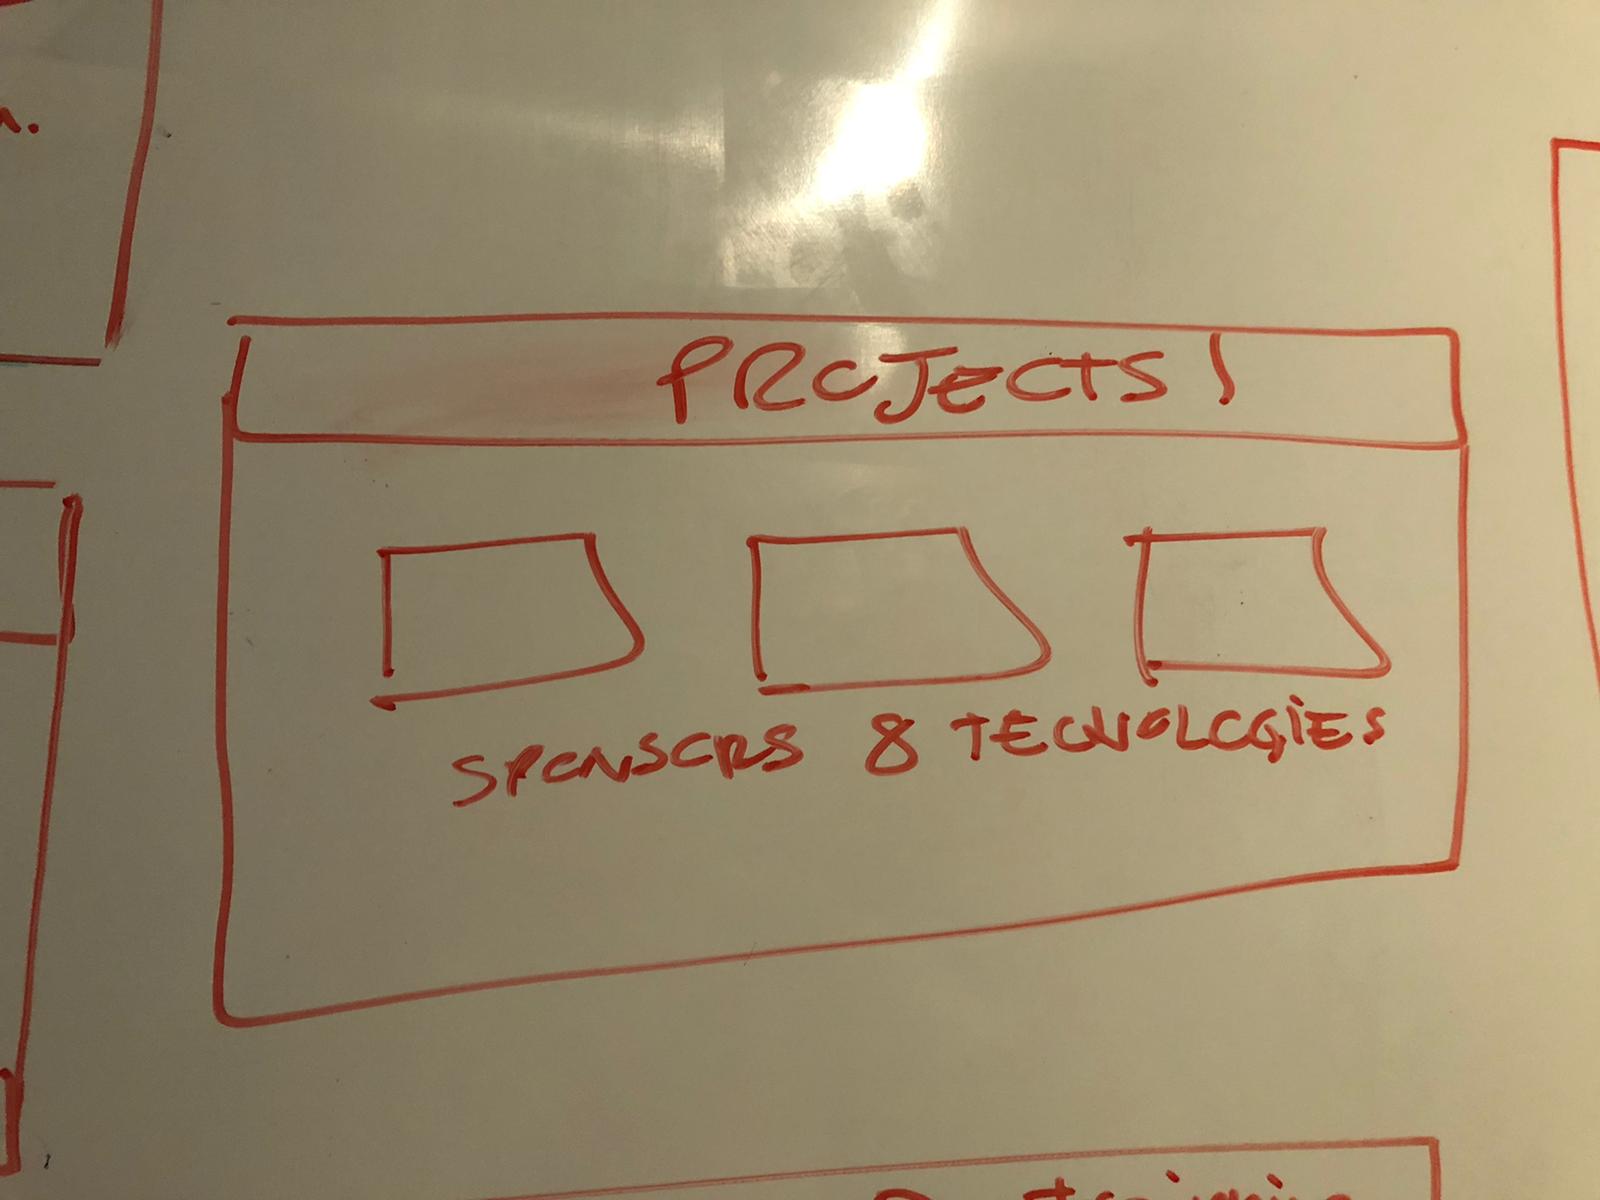 PROJECTS!
SPONSORS & TECNOLOGIES